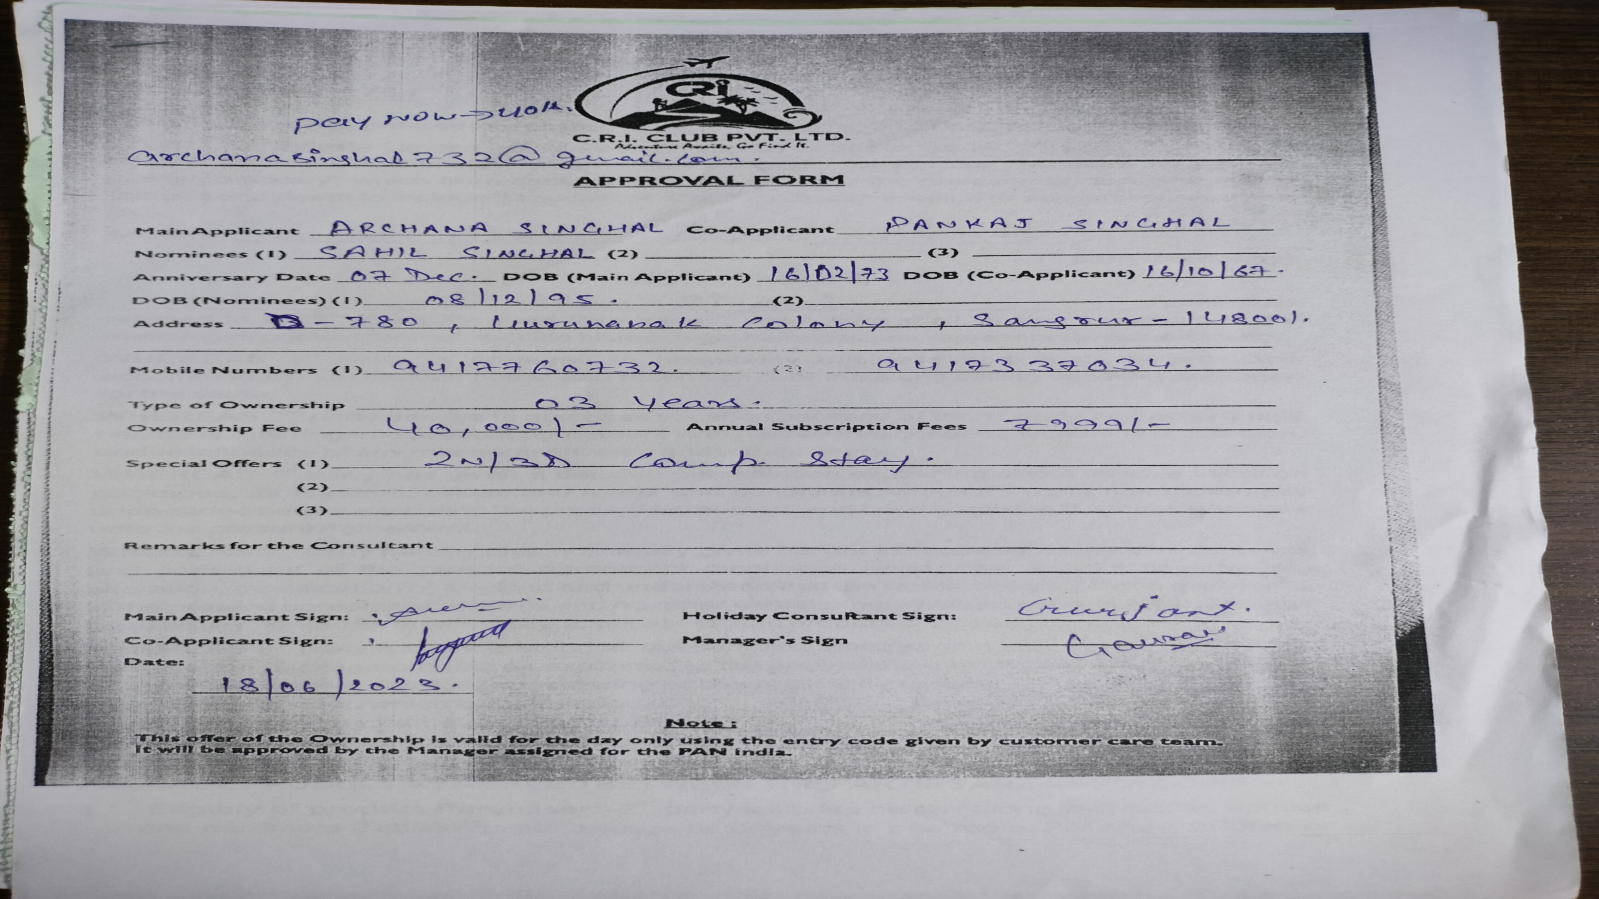 pay now → 40k.
CRI
C.R.I. CLUB PVT. LTD.
Adventure Awaits, Go Find It.
archanasinghal732@gmail.com.
APPROVAL FORM
Main Applicant ARCHANA SINGHAL Co-Applicant PANKAJ SINGHAL
Nominees (1) SAHIL SINGHAL (2) (3)
Anniversary Date 07 Dec. DOB (Main Applicant) 16/02/73 DOB (Co-Applicant) 16/10/67.
DOB (Nominees) (1) 08/12/95. (2)
Address D-780, Gurunanak Colony, Sangrur-148001.
Mobile Numbers (1) 9417760732. (2) 9417337034.
Type of Ownership 03 Years.
Ownership Fee 40,000/- Annual Subscription Fees 7999/-
Special Offers (1) 2N/3D Comp. Stay.
(2)
(3)
Remarks for the Consultant
Main Applicant Sign: Holiday Consultant Sign: Gurjant.
Co-Applicant Sign: Manager's Sign Gaurav
Date:
18/06/2023.
Note :
This offer of the Ownership is valid for the day only using the entry code given by customer care team.
It will be approved by the Manager assigned for the PAN india.